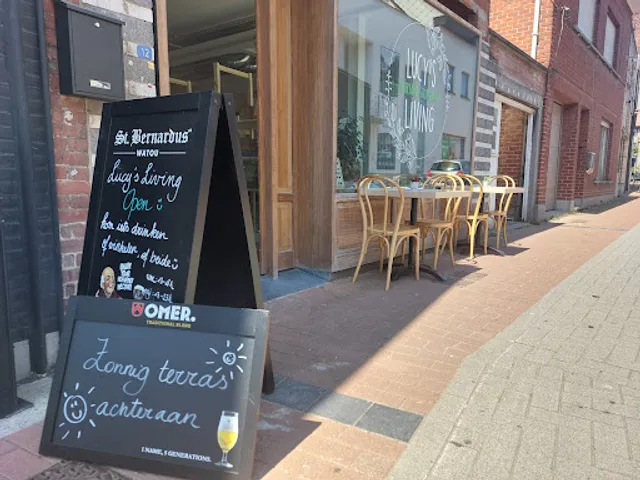 12
St. Bernardus
WATOU
Lucy's Living
Open :)
kom iets drinken
of winkelen, of beide :)
OMER.
TRADITIONAL BLOND
Zonnig terras
achteraan
1 NAME, 5 GENERATIONS.
LUCY'S
LIVING